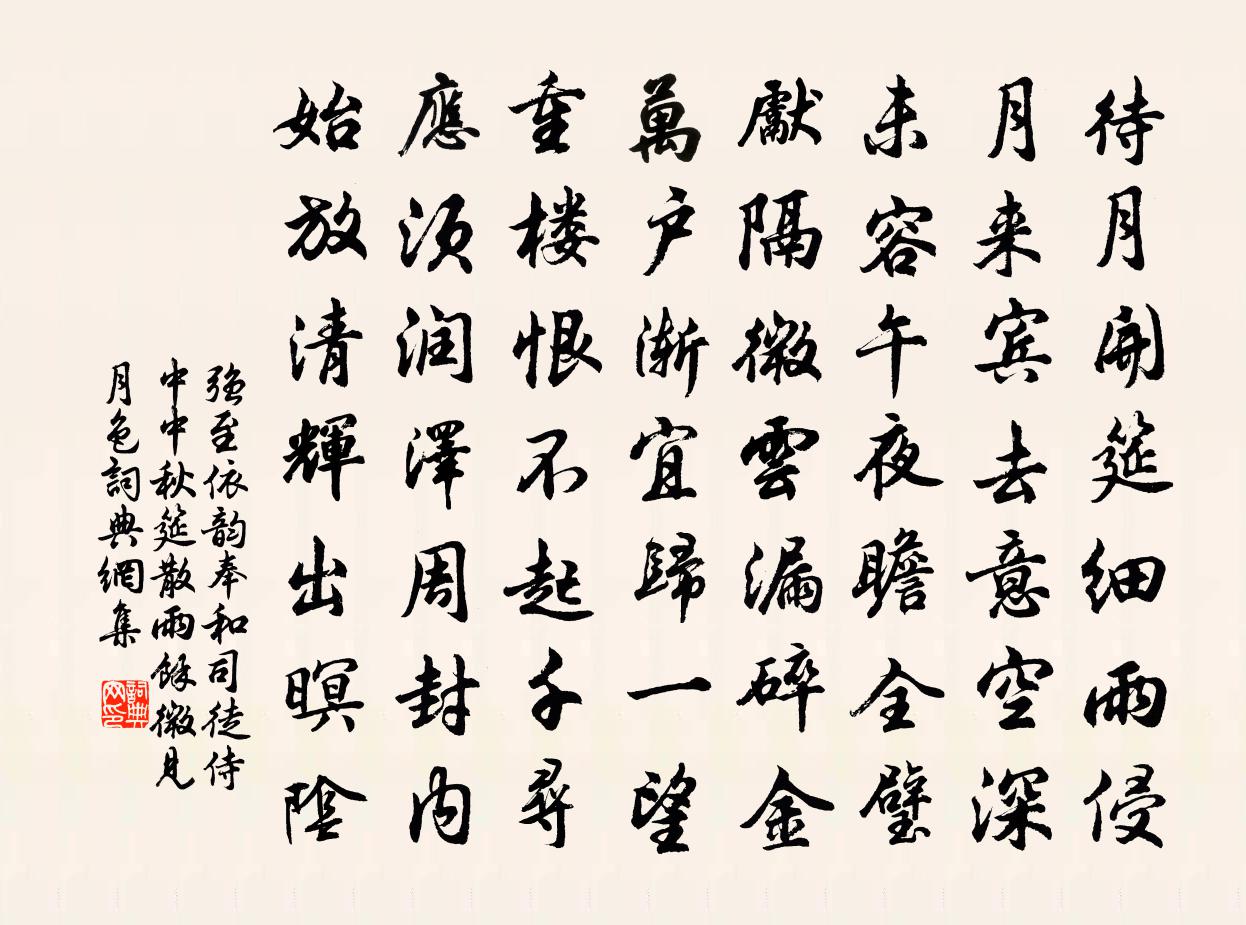 待月開筵細雨侵
月来宾去意空深
未容午夜瞻全璧
獻隔微雲漏碎金
萬户渐宜歸一望
重楼恨不起千尋
應须润澤周封内
始放清輝出暝陰
强至依韵奉和司徒侍
中中秋筵散雨餘微見
月色詞典網集
詞典
网印